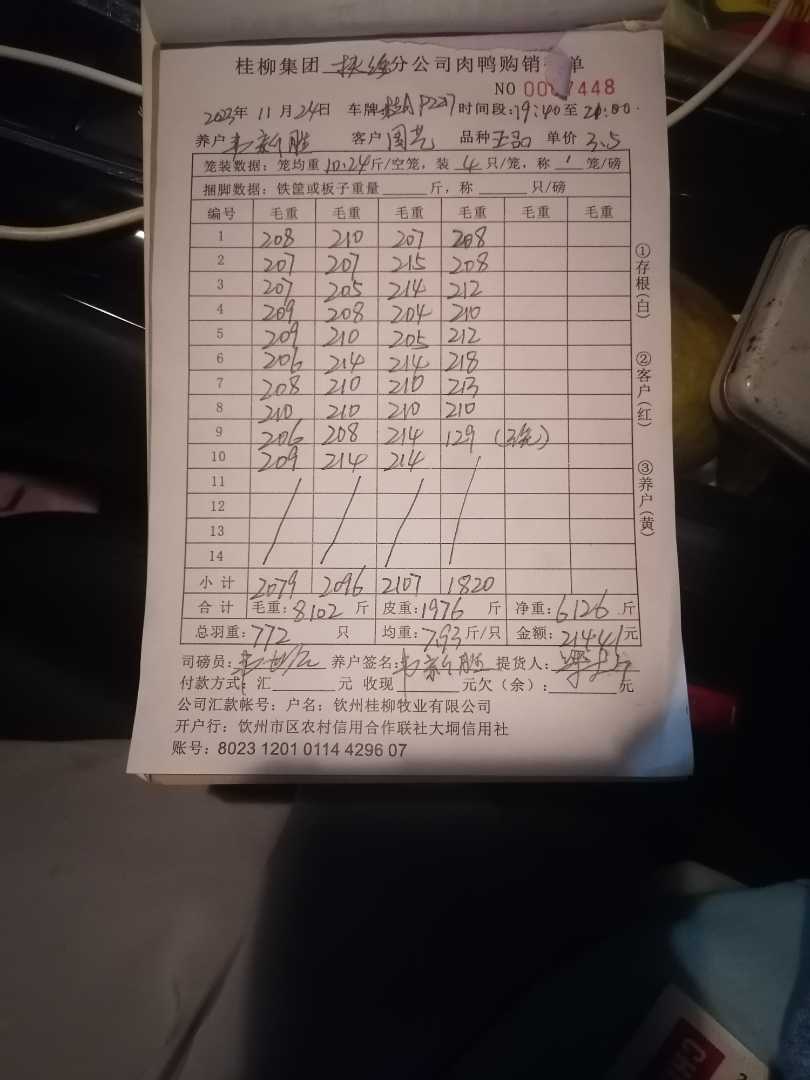 桂柳集团 分公司肉鸭购销 单
NO 00 7448
2023年 11月24日 车牌 P2207 时间段:19:40至 21:00.
养户 韦新胜 客户 国艺 品种 单价 3.5
笼装数据：笼均重 10.24 斤/空笼，装 4 只/笼，称 1 笼/磅
捆脚数据：铁筐或板子重量 斤，称 只/磅
编号 毛重 毛重 毛重 毛重 毛重 毛重
1 208 210 207 208
2 207 207 215 208
3 207 205 214 212
4 209 208 204 210
5 209 210 205 212
6 206 214 214 218
7 208 210 210 213
8 210 210 210 210
9 206 208 214 129
10 209 214 214
11
12
13
14
小计 2079 2096 2107 1820
合计 毛重：8102 斤 皮重：1976 斤 净重：6126 斤
总羽重：772 只 均重：7.93 斤/只 金额：21441元
司磅员： 养户签名：韦新胜 提货人：
付款方式：汇 元 收现 元欠（余）： 元
公司汇款帐号：户名：钦州桂柳牧业有限公司
开户行：钦州市区农村信用合作联社大垌信用社
账号：8023 1201 0114 4296 07
①存根(白)
②客户(红)
③养户(黄)